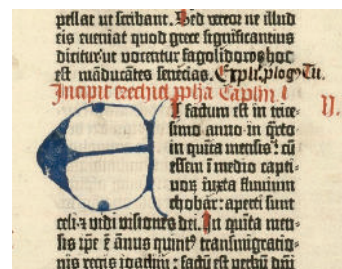 pellat ut scribant. Sed vereor ne illud
eis eveniat quod grece significantius
dicitur ut vocentur fagolidoros hoc
est māducātes senecias. Explic̄ plog9 Tu.
Incipit ezechiel ꝓpha Capl'm. i
Et factum est in trice-
simo anno in q̄rto
in quīta mensis: cū
essem ī medio capti-
vorꝝ iuxta fluvium
chobar: aperti sunt
celi ⁊ vidi visiones dei. In quīta men-
sis ip̄e ē annus quint9 transmigratio-
nis regis ioachin: factū est verbū dn̄i